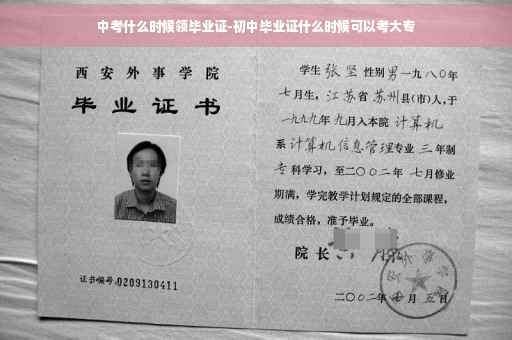 中考什么时候领毕业证-初中毕业证什么时候可以考大专
西安外事学院
毕业证书
证书编号:0209130411
学生 张坚 性别 男 一九八〇年
七月生，江苏省 苏州县(市)人，于
一九九九年 九月入本院 计算机
系 计算机信息管理专业 三 年制
专 科学习，至二〇〇二年 七月修业
期满，学完教学计划规定的全部课程，
成绩合格，准予毕业。
院长
二〇〇二年 月 五 日